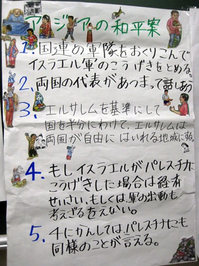 アジアの和平案
1. 国連の軍隊をおくりこんで
イスラエル軍のこうげきをとめる。
2. 両国の代表があつまって話しあう
3. エルサレムを基準にして
国を半分にわけて、エルサレムは
両国が自由にはいれる地域に
4. もしイスラエルがパレスチナに
こうげきした場合は経済
せいさい、もしくは、軍の出動も
考えざるをえない。
5. 4にかんしてはパレスチナにも
同様のことが言える。